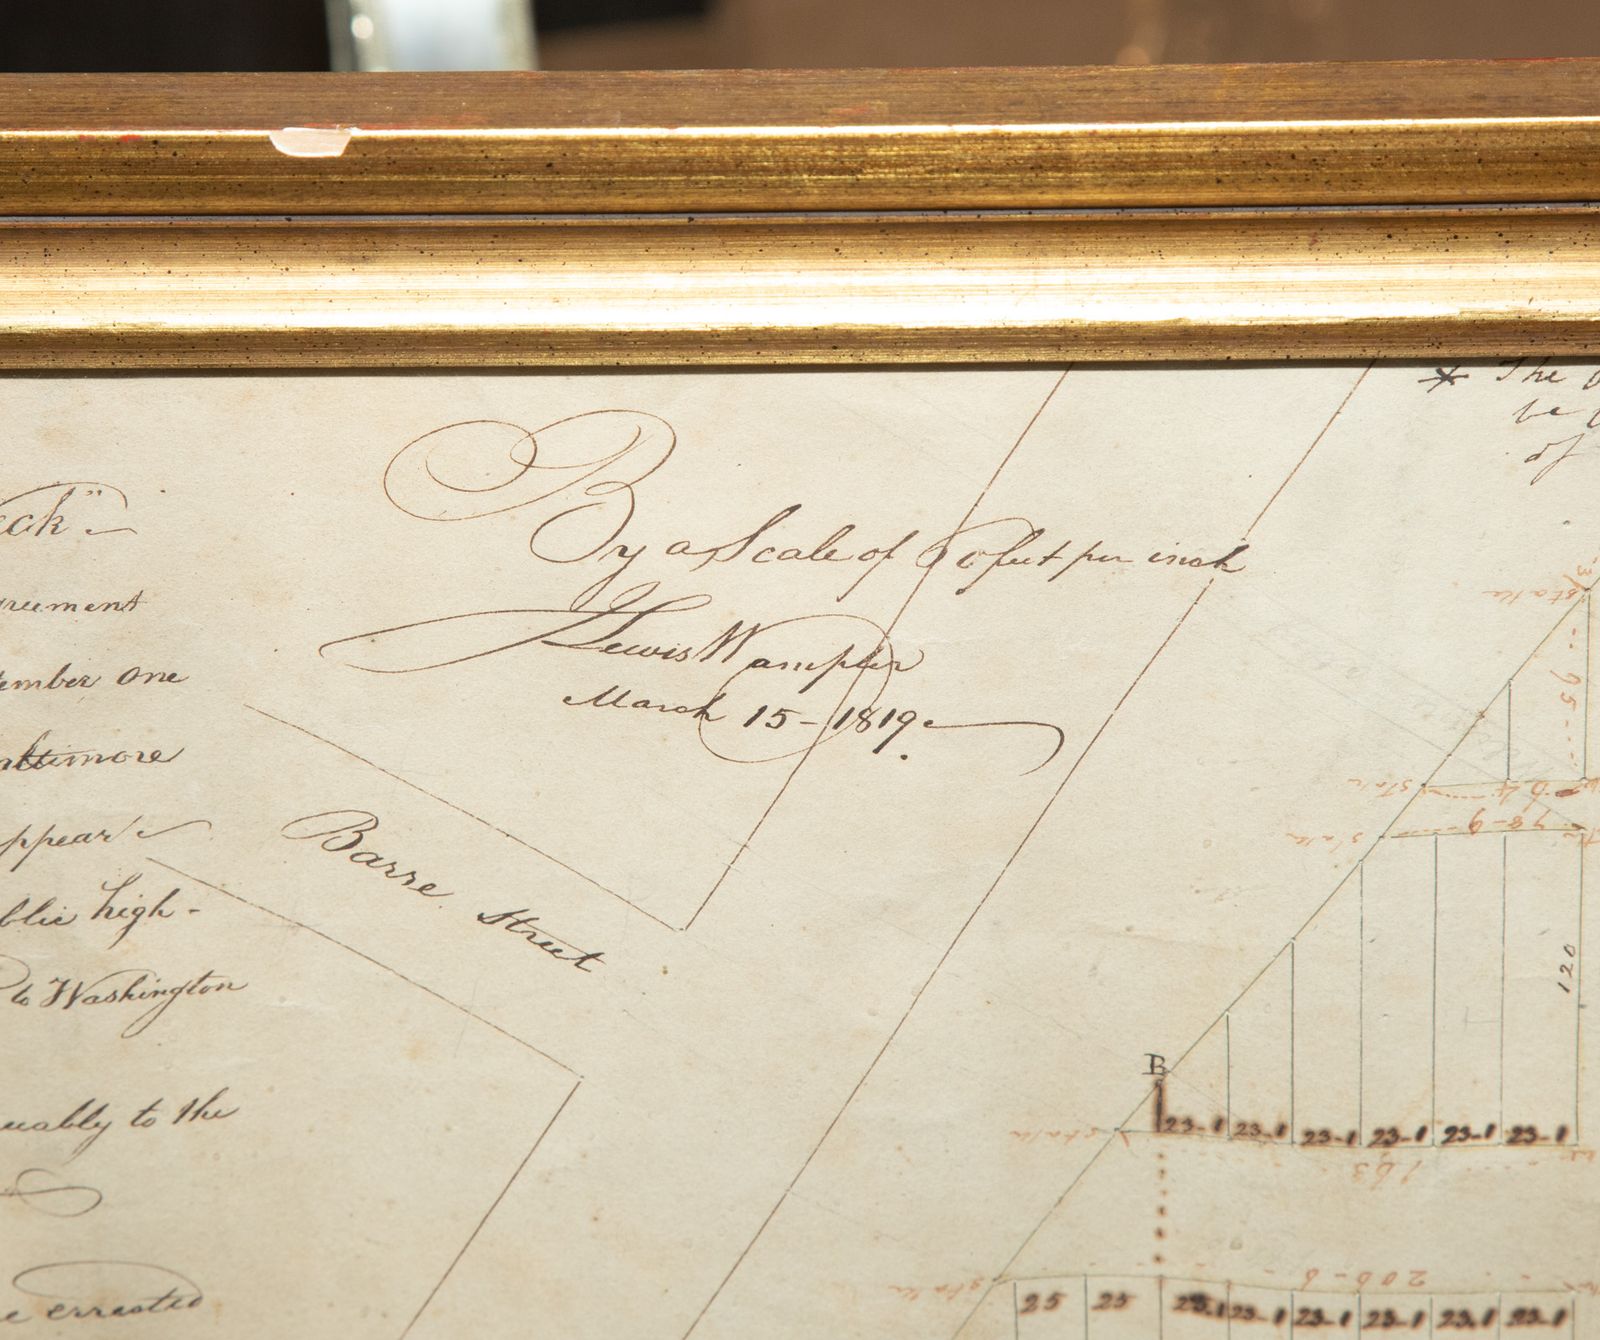 By a Scale of 60 feet per inch
Lewis Wampler
March 15 - 1819.
Barre Street
* The
be
of
eck"
greement
tember one
altimore
appear
blic high-
to Washington
uably to the
e errected
stake
95
stake
stake
78-9
120
B
stake
23-1 23-1 23-1 23-1 23-1 23-1
163
stake
200-6
25 25 23-1 23-1 23-1 23-1 23-1 23-1